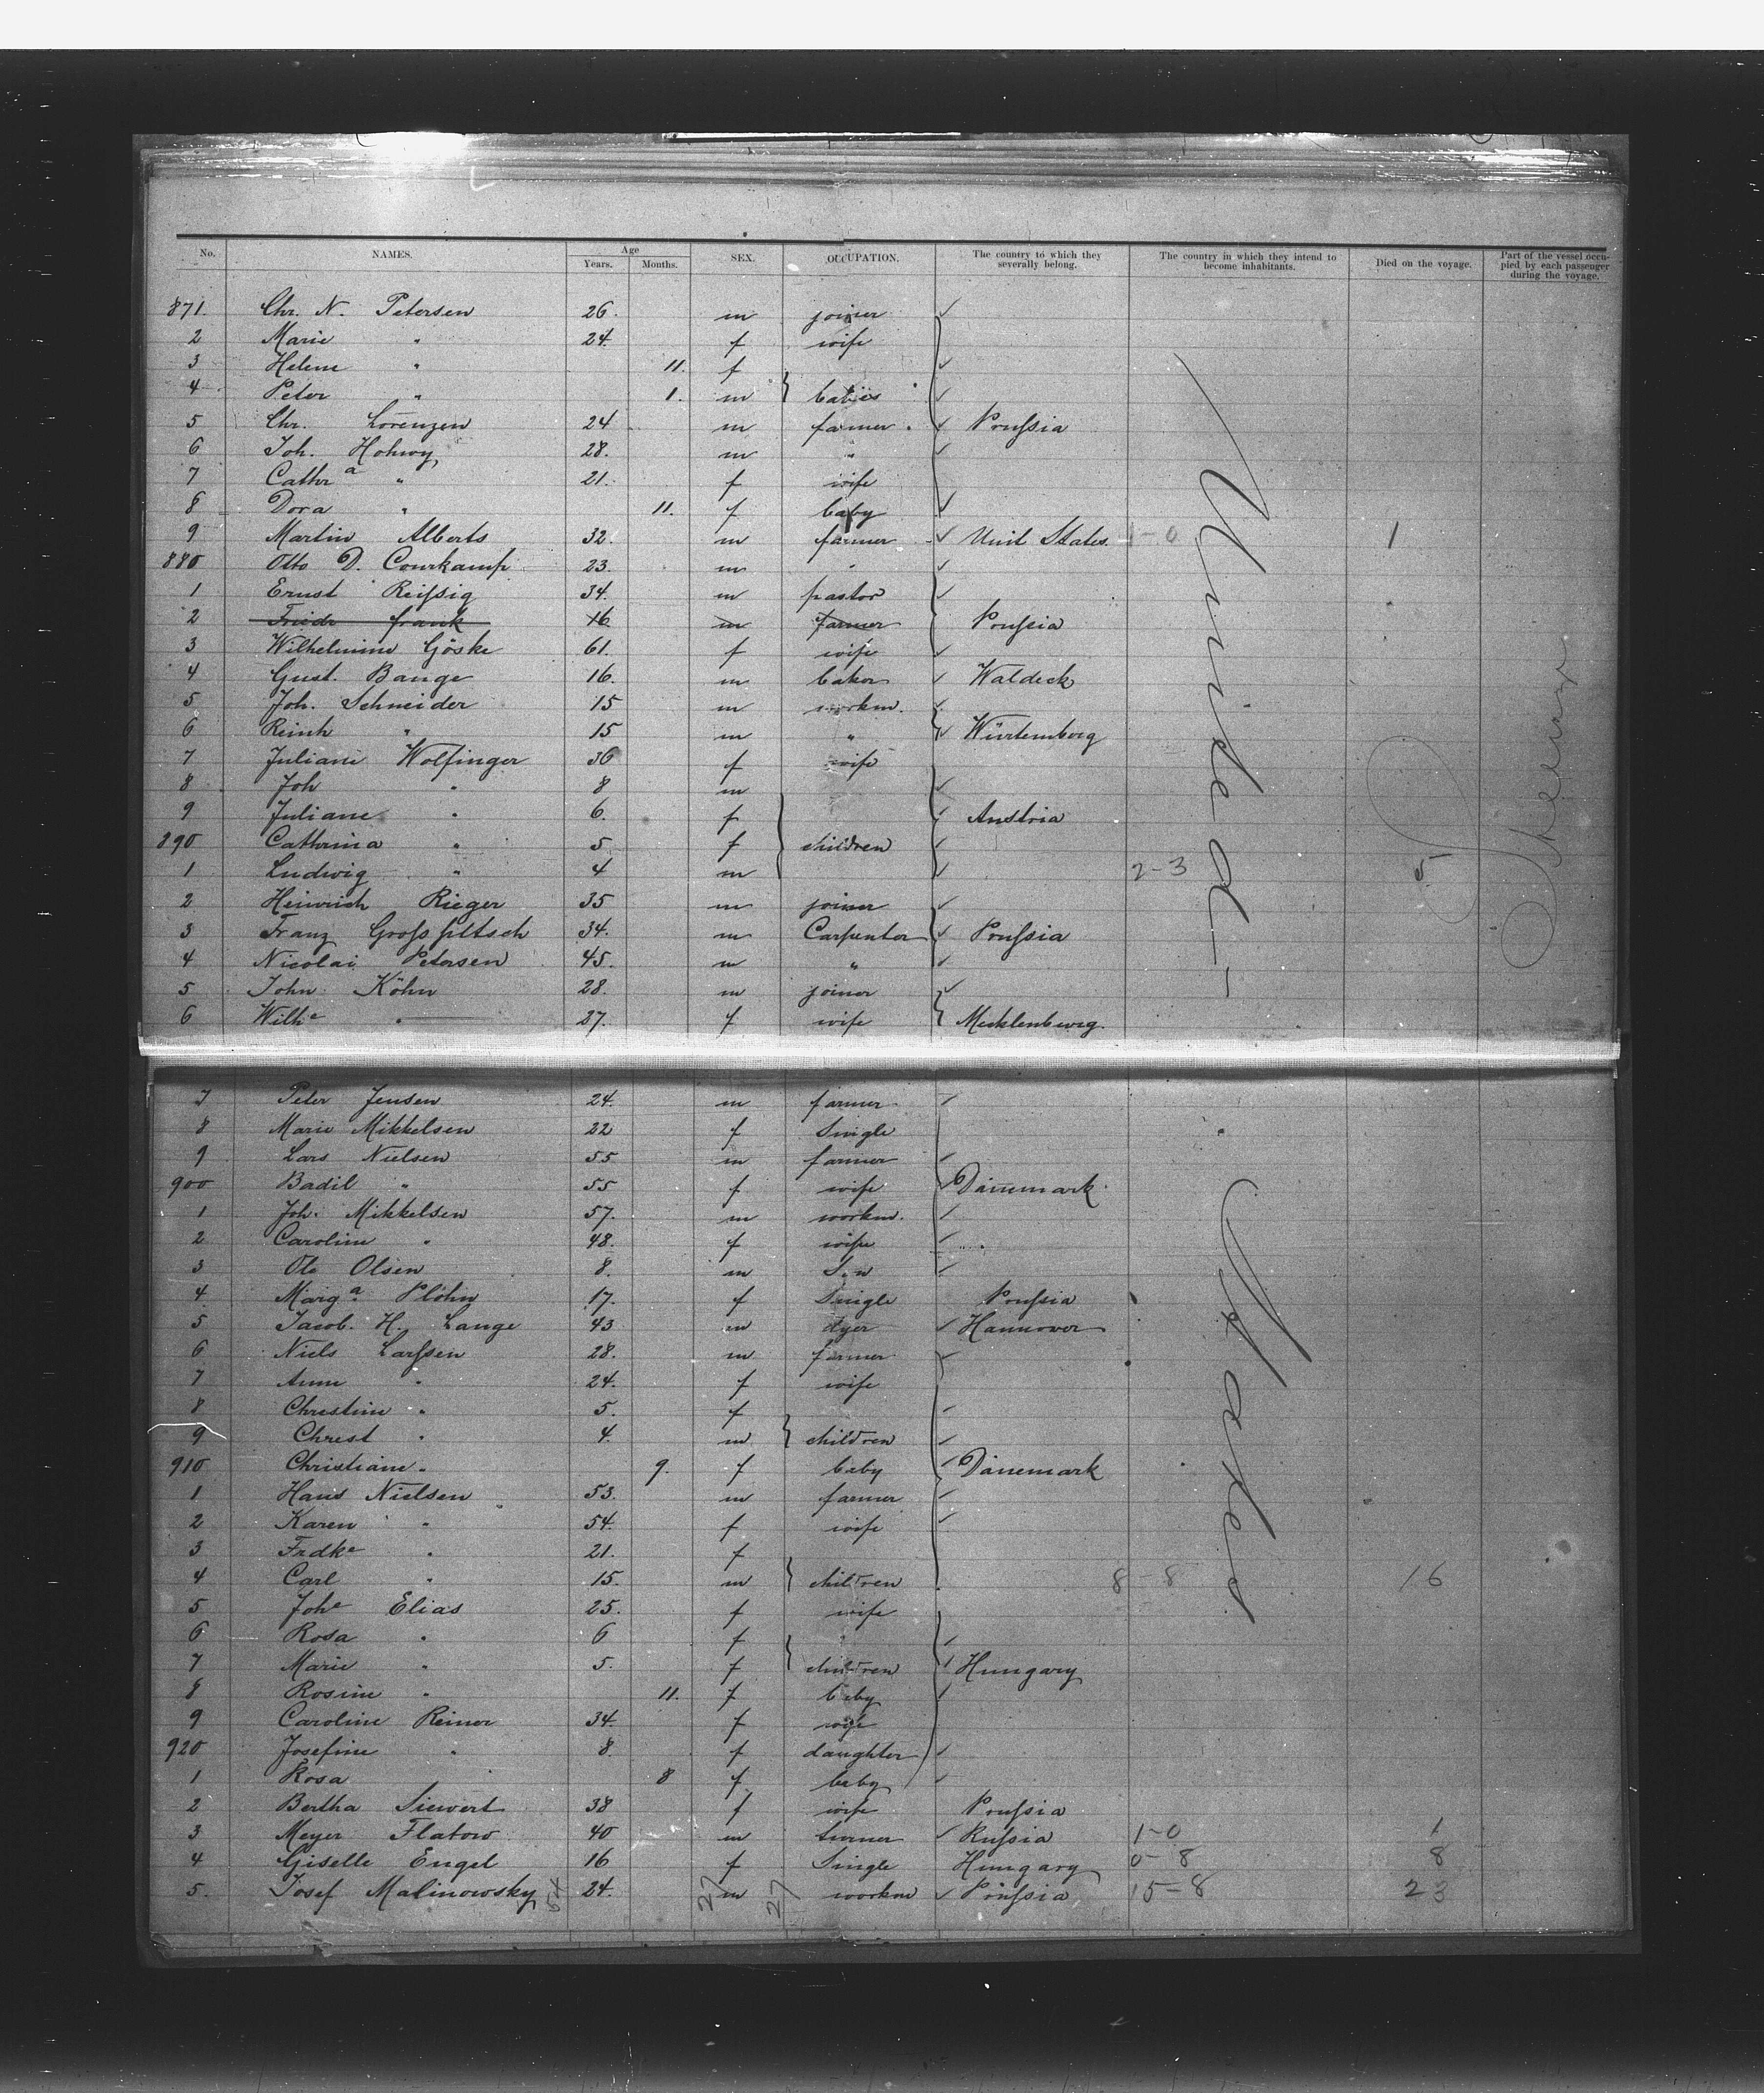 No. NAMES. Age Years. Months. SEX. OCCUPATION. The country to which they severally belong. The country in which they intend to become inhabitants. Died on the voyage. Part of the vessel occupied by each passenger during the voyage.
871. Chr. N. Petersen 26. m joiner
2 Marie " 24. f wife
3 Helene " 11. f
4 Peter " 1. m babies
5 Chr. Lorenzen 24 m farmer Prussia
6 Joh. Hohwy 28. m "
7 Cathra " 21. f wife
8 Dora " 11. f baby
9 Martin Alberts 32. m farmer Unit States. 1-0 1
880 Otto D. Courkamp 23. m "
1 Ernst Reissig 34. m pastor
2 Friedr Frank 16 m farmer Prussia
3 Wilhelmine Göske 61. f wife
4 Gust. Bange 16. m baker Waldeck
5 Joh. Schneider 15 m workm.
6 Reinh " 15 m " Würtemberg
7 Juliane Wolfinger 36 f wife
8 Joh " 8 m
9 Juliane " 6. f Austria
890 Cathrina " 5 f children
1 Ludwig " 4 m 2-3 5
2 Heinrich Rieger 35 m joiner
3 Franz 34. m Carpenter Prussia
4 Nicolai Petersen 45. m "
5 John Köhn 28. m joiner
6 Wilhe " 27. f wife Mecklenburg.
United
7 Peter Jensen 24. m farmer
8 Marie Mikkelsen 22 f Single
9 Lars Nielsen 55 m farmer
900 Badil " 55 f wife Dänemark
1 Joh. Mikkelsen 57. m workm.
2 Caroline " 48. f wife
3 Ole Olsen 8. m Son
4 Marga Plöhn 17. f Single Prussia
5 Jacob. H. Lange 43 m dyer Hannover
6 Niels Larssen 28. m farmer
7 Anne " 24. f wife
8 Christine " 5. f
9 Christ " 4. m children
910 Christiane " 9. f baby Dänemark
1 Hans Nielsen 53. m farmer
2 Karen " 54. f wife
3 Frdke " 21. f
4 Carl " 15. m children 8-8 16
5 Johe Elias 25. f wife
6 Rosa " 6 f
7 Marie " 5. f children Hungary
8 Rosine " 11. f baby
9 Caroline Reiner 34. f wife
920 Josefine " 8. f daughter
1 Rosa 8 f baby
2 Bertha Siewert 38 f wife Prussia
3 Meyer Flatow 40 m turner Russia 1-0 1
4 Giselle Engel 16 f Single Hungary 0-8 8
5. Josef Malinowsky 24. m workm Prussia 15-8 23
54 27 27
States